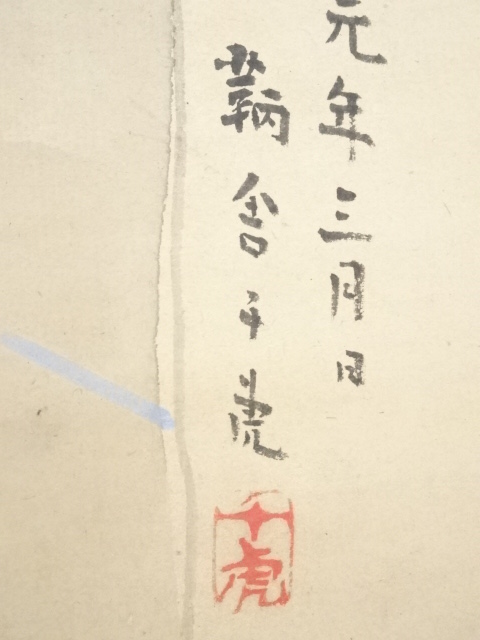 元年三月日
鞆舎千虎
千虎